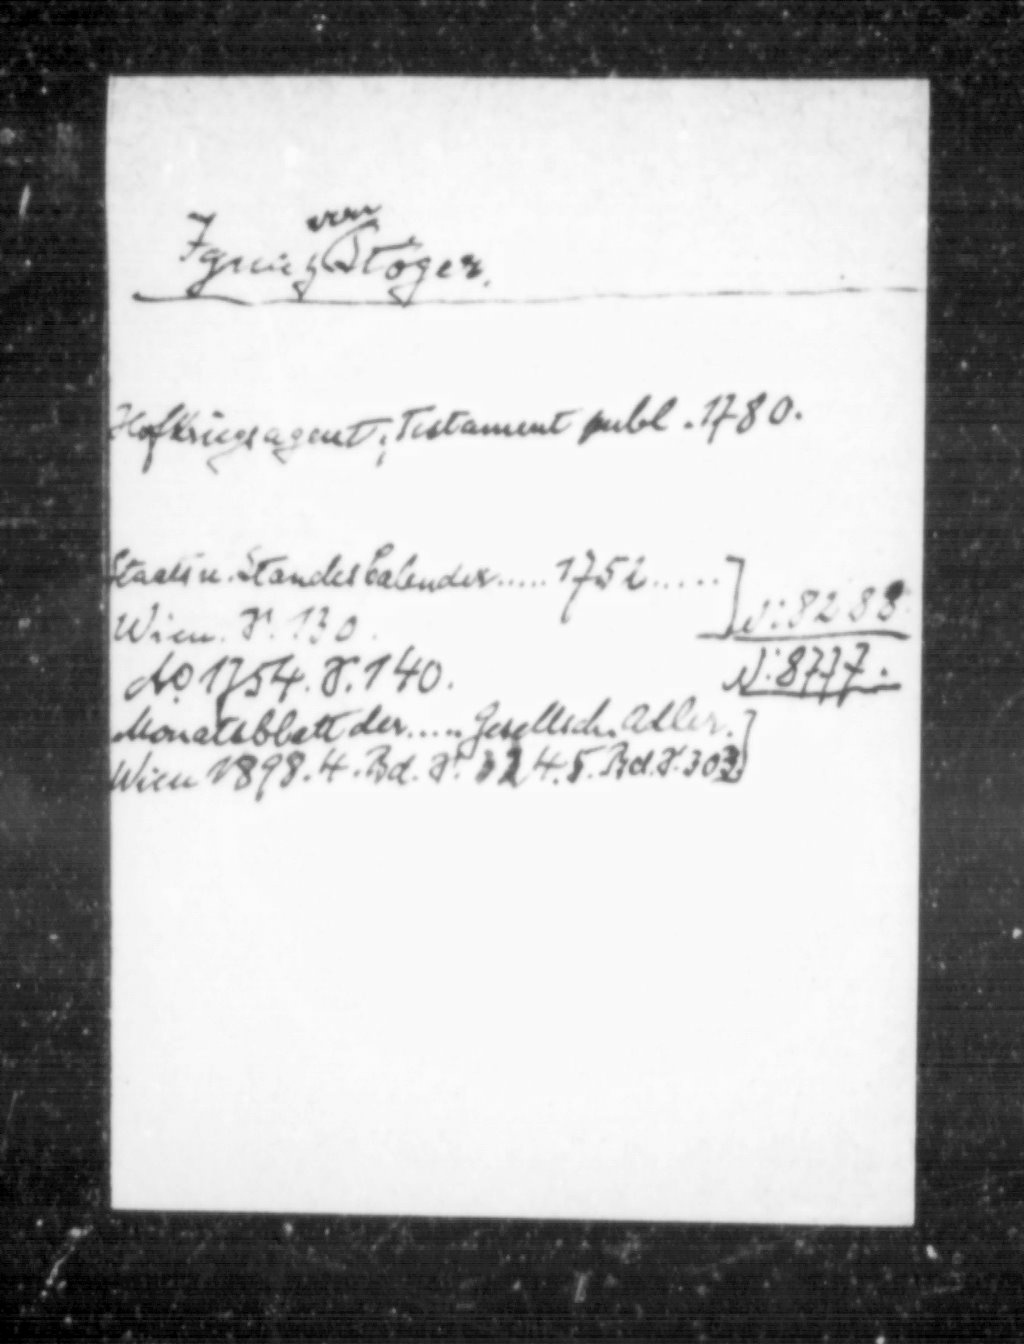 Ignaz von Stöger.
Hofkriegsagent; Testament publ. 1780.
Staats u. Standes Calender..... 1752.....
Wien. S. 130. N: 8288.
Ao 1754. S. 140. N: 8777.
Monatsblatt der..... Gesellsch. Adler.
Wien 1898. 4. Bd. S. 324. 5. Bd. S. 303.